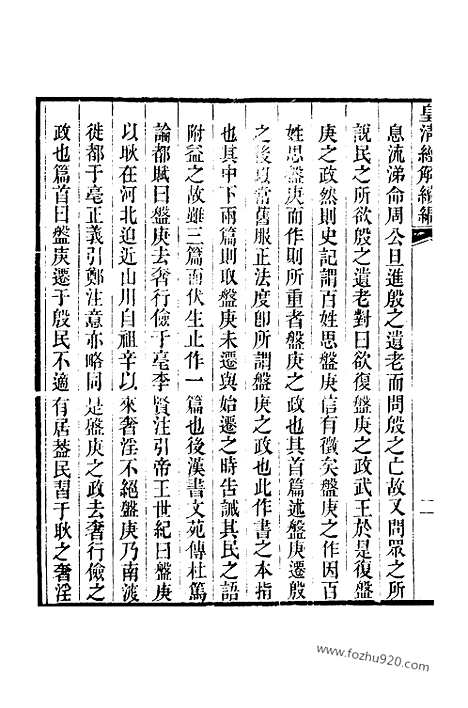 皇清經解續編
二
息流涕命周公旦進殷之遺老而問殷之亡故又問眾之所
說民之所欲殷之遺老對曰欲復盤庚之政武王於是復盤
庚之政然則史記謂百姓思盤庚信有徵矣盤庚之作因百
姓思盤庚而作則所重者盤庚之政也其首篇述盤庚遷殷
之後以常舊服正法度卽所謂盤庚之政也此作書之本指
也其中下兩篇則取盤庚未遷與始遷之時告誡其民之語
附益之故雖三篇而伏生止作一篇也後漢書文苑傳杜篤
論都賦曰盤庚去奢行儉于亳李賢注引帝王世紀曰盤庚
以耿在河北迫近山川自祖辛以來奢淫不絕盤庚乃南渡
徙都于亳正義引鄭注意亦略同是盤庚之政去奢行儉之
政也篇首曰盤庚遷于殷民不適有居葢民習于耿之奢淫
www.fozhu920.com